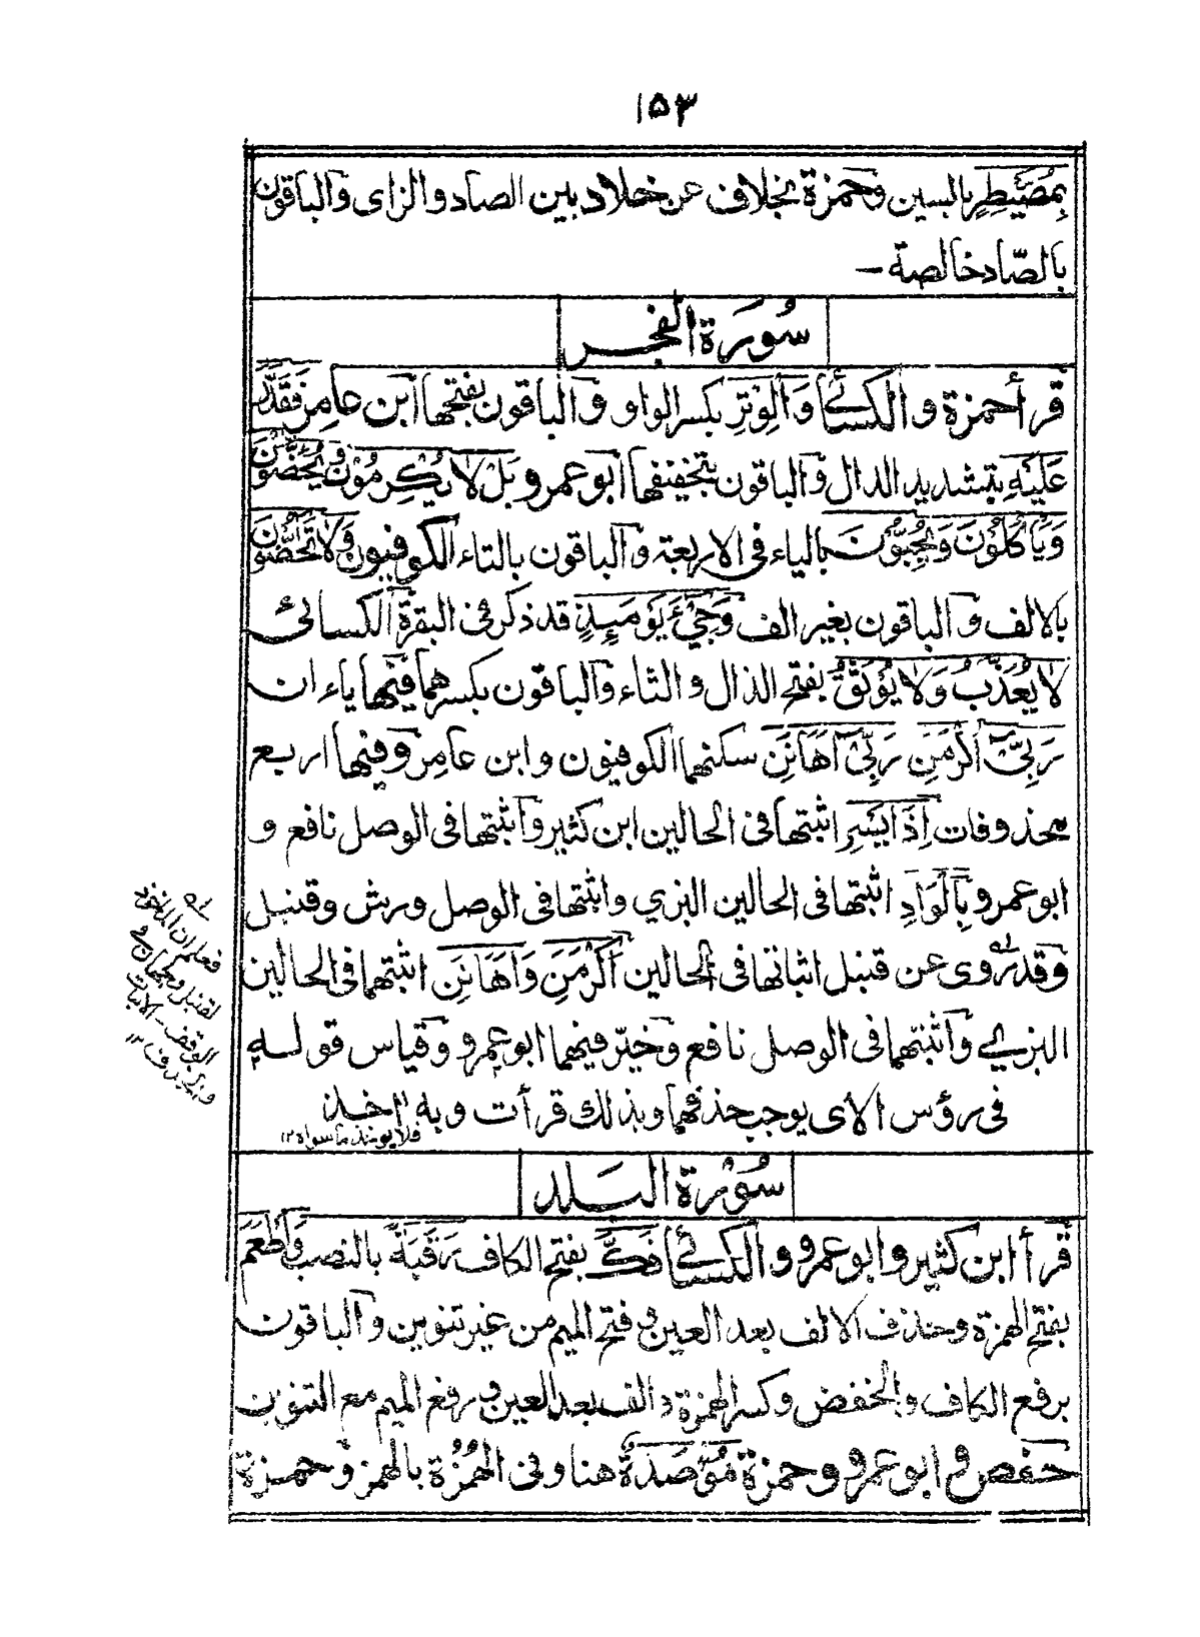 ١٥٣
بِمُصَيْطِرٍ بالسين وحمزة بخلاف عن خلاد بين الصاد والزاى والباقون
بالصّاد خالصة –
سُورَة الفجر
قرأ حمزة والكسائي وَالوِتْرِ بكسر الواو والباقون بفتحها ابن عامر فَقَدَّرَ
عَلَيْهِ بتشديد الدال والباقون بتخفيفها ابو عمرو بَلْ لا يُكْرِمُوْنَ و يَحُضُّوْنَ
وَيَأكُلُوْنَ وَيُحِبُّوْنَ بالياء فى الاربعة والباقون بالتاء الكوفيون وَلَا تَحٰضُّوْنَ
بالالف والباقون بغير الف وَجِيْءَ يَوْمَئِذٍ قد ذكر فى البقرة الكسائى
لا يُعَذَّبُ وَلَا يُوْثَقُ بفتح الذال والثاء والباقون بكسرهما فيها ياءان
رَبِّيْ اَكْرَمَنِ رَبِّيْ اَهَانَنِ سكنهما الكوفيون وابن عامر وفيها اربع
محذوفات اِذَا يَسْرِ اثبتها فى الحالين ابن كثير واثبتها فى الوصل نافع و
ابو عمرو بِالْوَادِ اثبتها فى الحالين البزي واثبتها فى الوصل ورش وقنبل
وقد روى عن قنبل اثباتها فى الحالين اَكْرَمَنِ وَاَهَانَنِ اثبتهما فى الحالين
البزي واثبتهما فى الوصل نافع وخيّر فيهما ابو عمرو وقياس قوله
فى رؤس الاى يوجب حذفهما وبذلك قرأت وبه اٰخذ
فلا يوخذ ما سواه ١٢
سُوْرَة البَلد
قرأ ابن كثير وابو عمرو والكسائي فَكَّ بفتح الكاف رَقَبَةً بالنصب وَاَطْعَمَ
بفتح الهمزة وحذف الالف بعد العين وفتح الميم من غير تنوين والباقون
برفع الكاف والخفض وكسر الهمزة والف بعد العين ورفع الميم مع التنوين
حفص وابو عمرو وحمزة مُؤْصَدَةٌ هنا وفى الهُمَزة بالهمز وحمزة
فعلم ان الماخوذ
الوقف - الاثبات